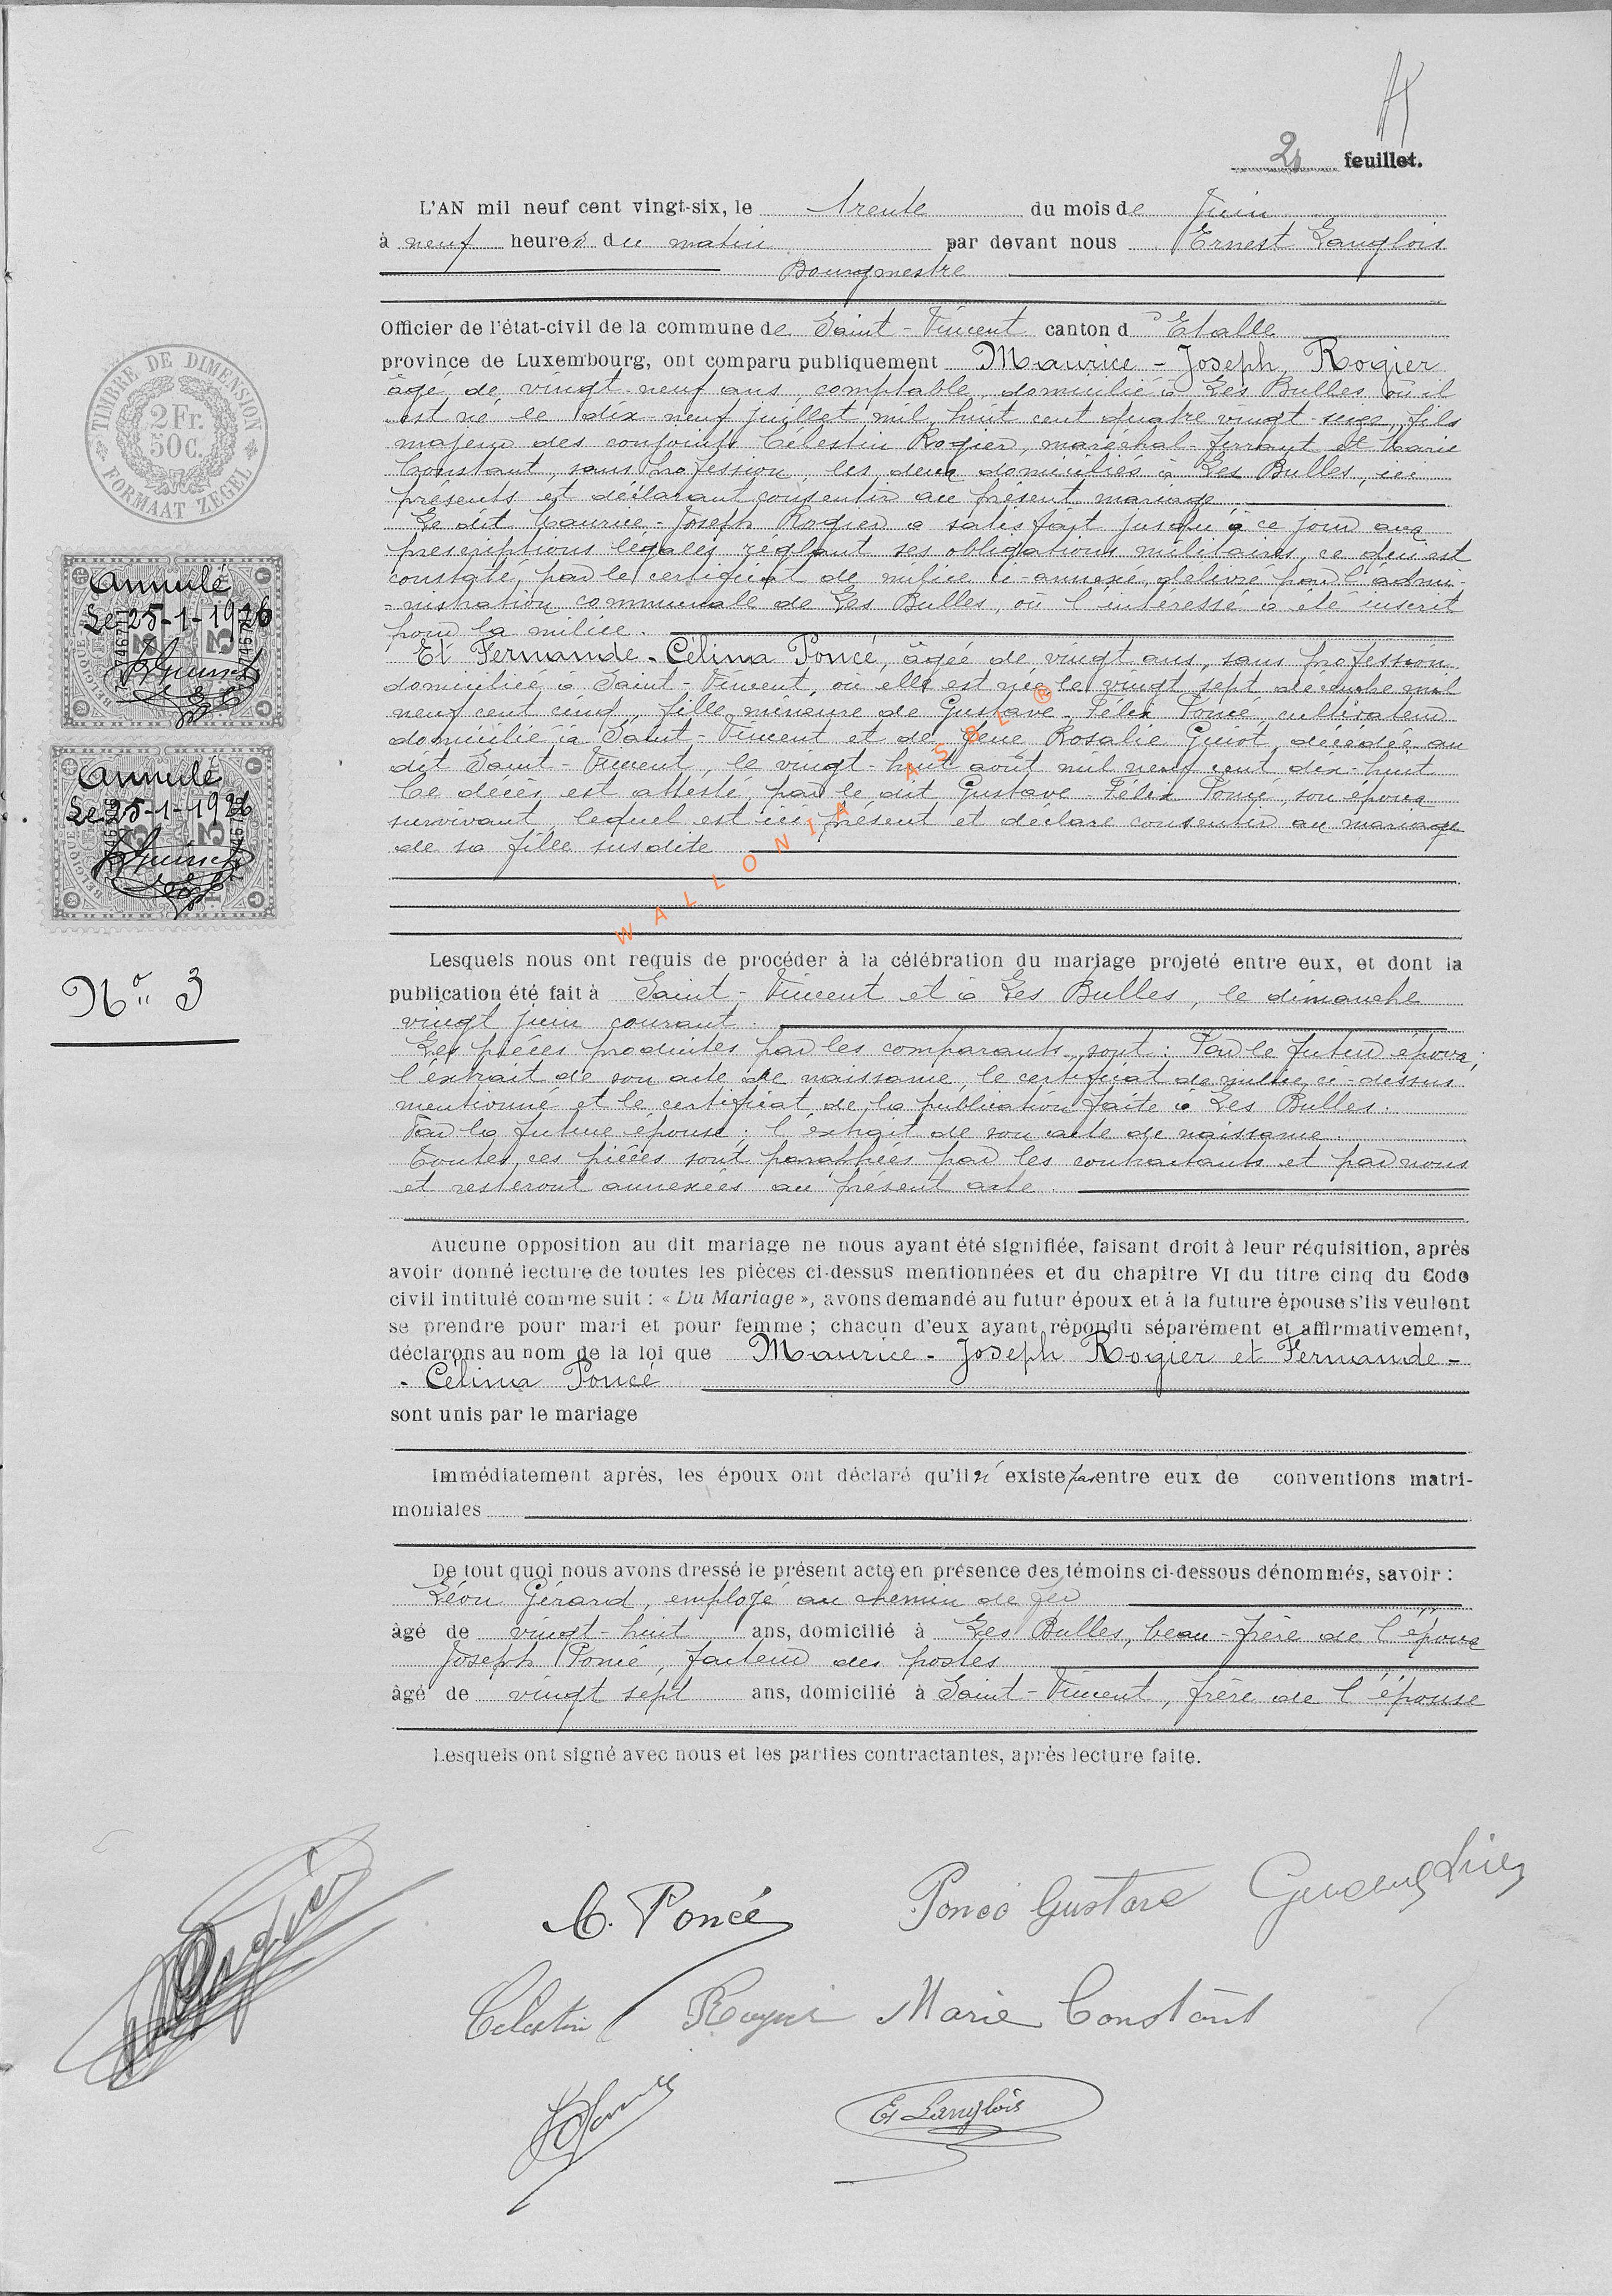 2e feuillet.
L'AN mil neuf cent vingt-six, le trente du mois de Juin
à neuf heures du matin par devant nous Ernest Langlois
Bourgmestre
Officier de l'état-civil de la commune de Saint-Vincent canton d'Etalle
province de Luxembourg, ont comparu publiquement Maurice-Joseph Rogier
âgé de vingt-neuf ans, comptable, domicilié à Les Bulles où il
est né le dix-neuf juillet mil huit cent quatre vingt-seize, fils
majeur des conjoints Célestin Rogier, maréchal-ferrant et Marie
Constant, sans profession, les deux domiciliés à Les Bulles, ici
présents et déclarant consentir au présent mariage
Le dit Maurice-Joseph Rogier a satisfait jusqu'à ce jour aux
prescriptions légales réglant ses obligations militaires, ce qui est
constaté par le certificat de milice ci-annexé, délivré par l'admi-
-nistration communale de Les Bulles, où l'intéressé a été inscrit
pour la milice.
Et Fernande-Célina Poncé, âgée de vingt ans, sans profession
domiciliée à Saint-Vincent, où elle est née le vingt sept décembre mil
neuf cent cinq, fille mineure de Gustave-Félix Poncé, cultivateur
domicilié à Saint-Vincent et de feue Rosalie Guiot, décédée au
dit Saint-Vincent, le vingt-huit août mil neuf cent dix-huit
Ce décès est attesté par le dit Gustave-Félix Poncé, son époux
survivant lequel est ici présent et déclare consentir au mariage
de sa fille susdite
Lesquels nous ont requis de procéder à la célébration du mariage projeté entre eux, et dont la
publication été fait à Saint-Vincent et à Les Bulles, le dimanche
vingt juin courant.
Les pièces produites par les comparants sont: Par le futur époux;
l'extrait de son acte de naissance, le certificat de milice ci-dessus
mentionné et le certificat de la publication faite à Les Bulles.
Par la future épouse: l'extrait de son acte de naissance.
Toutes ces pièces sont paraphées par les contractants et par nous
et resteront annexées au présent acte.
Aucune opposition au dit mariage ne nous ayant été signifiée, faisant droit à leur réquisition, après
avoir donné lecture de toutes les pièces ci-dessus mentionnées et du chapitre VI du titre cinq du Code
civil intitulé comme suit : « Du Mariage », avons demandé au futur époux et à la future épouse s'ils veulent
se prendre pour mari et pour femme ; chacun d'eux ayant répondu séparément et affirmativement,
déclarons au nom de la loi que Maurice-Joseph Rogier et Fernande-
-Célina Poncé
sont unis par le mariage
Immédiatement après, les époux ont déclaré qu'il n'existe pas entre eux de conventions matri-
moniales
De tout quoi nous avons dressé le présent acte en présence des témoins ci-dessous dénommés, savoir :
Léon Gérard, employé au chemin de fer
âgé de vingt-huit ans, domicilié à Les Bulles, beau-frère de l'époux
Joseph Poncé, facteur des postes
âgé de vingt sept ans, domicilié à Saint-Vincent, frère de l'épouse
Lesquels ont signé avec nous et les parties contractantes, après lecture faite.
Rogier
C. Poncé Poncé Gustave
Celestin Rogier Marie Constant
Et Langlois
TIMBRE DE DIMENSION
2 Fr.
50 C.
FORMAAT ZEGEL
Annulé
Le 25-1-1926
Annulé
Le 25-1-1926
No 3
WALLONIA ASBL ®